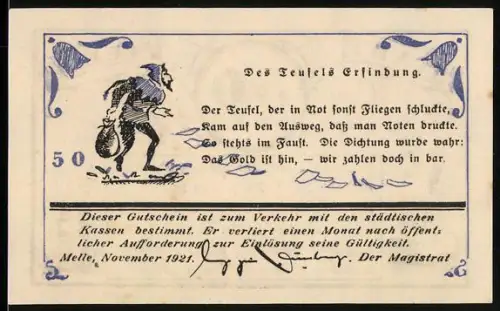 Des Teufels Erfindung.
Der Teufel, der in Not sonst Fliegen schluckte,
Kam auf den Ausweg, daß man Noten druckte.
So stehts im Faust. Die Dichtung wurde wahr:
Das Gold ist hin, — wir zahlen doch in bar.
50
Dieser Gutschein ist zum Verkehr mit den städtischen
Kassen bestimmt. Er verliert einen Monat nach öffent⸗
licher Aufforderung zur Einlösung seine Gültigkeit.
Melle, November 1921. Der Magistrat